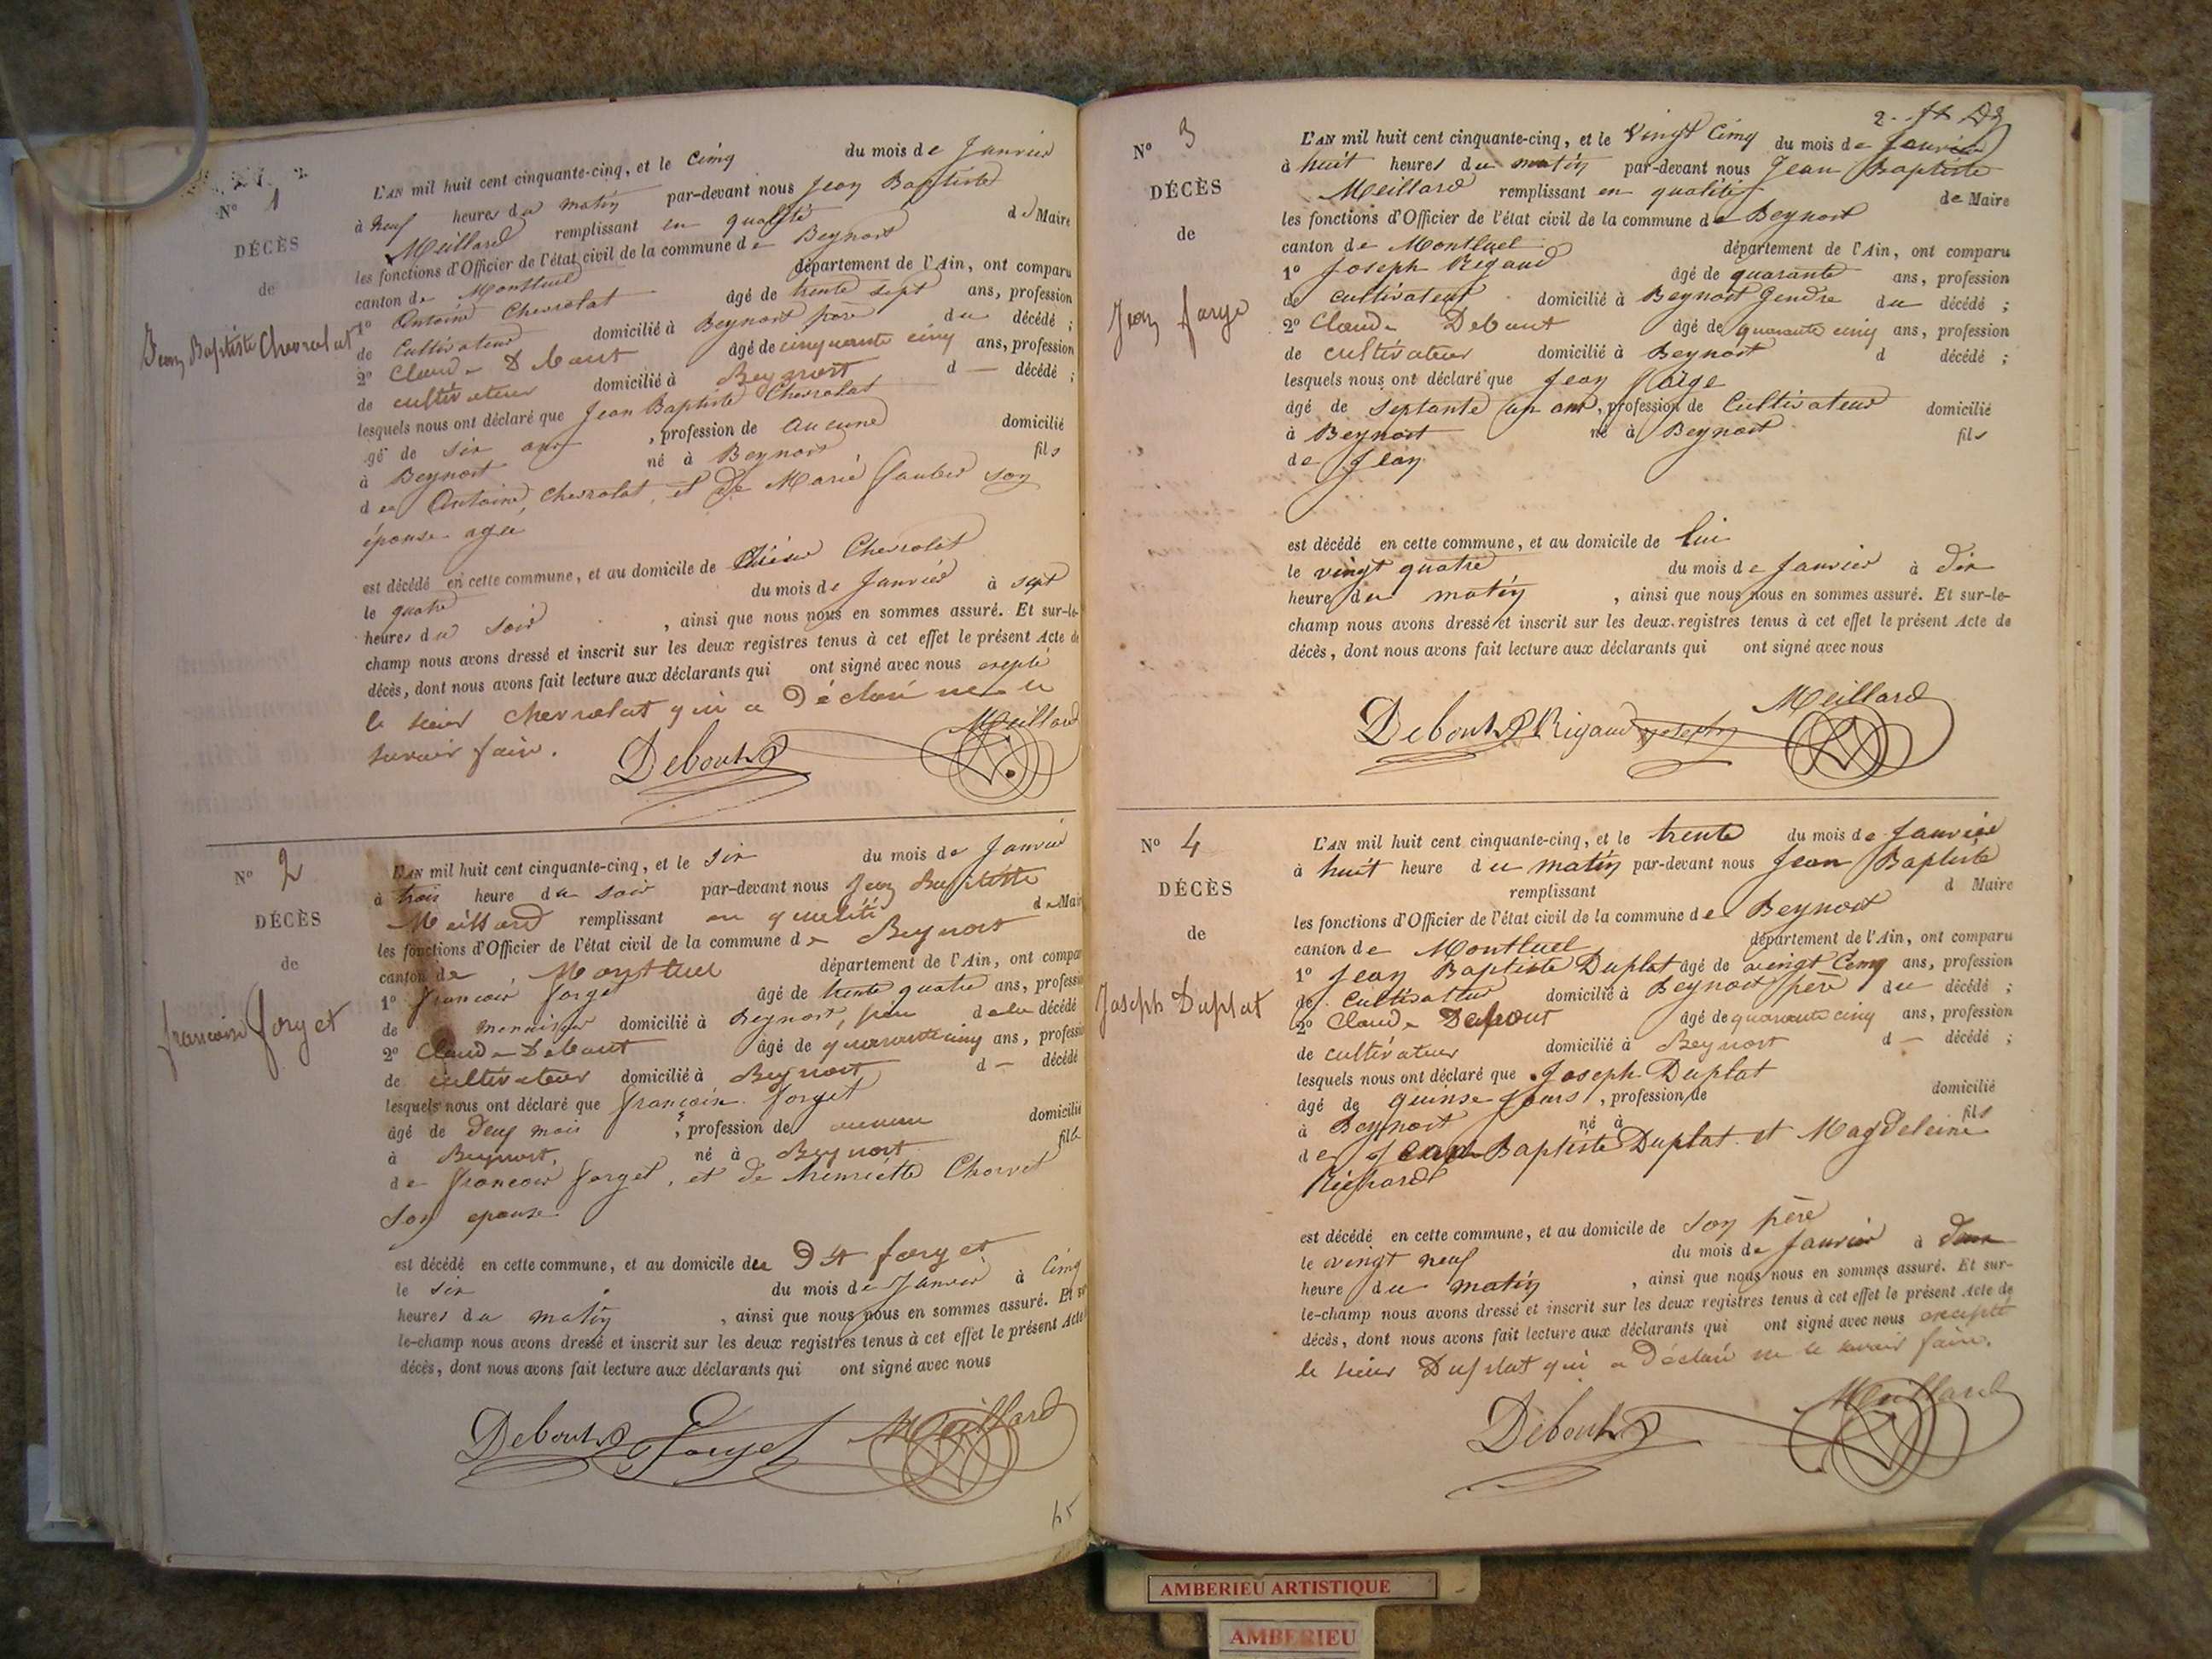 Nº 1
DÉCÈS
de
Jean Baptiste Chevrolat
L'AN mil huit cent cinquante-cinq, et le Cinq du mois de Janvier
à neuf heures du matin par-devant nous Jean Baptiste
Meillard remplissant en qualité de Maire
les fonctions d'Officier de l'état civil de la commune de Beynost
canton de Montluel département de l'Ain, ont comparu
1º Antoine Chevrolat âgé de trente sept ans, profession
de Cultivateur domicilié à Beynost père du décédé ;
2º Claude Debout âgé de cinquante cinq ans, profession
de cultivateur domicilié à Beynost d — décédé ;
lesquels nous ont déclaré que Jean Baptiste Chevrolat
gé de six ans , profession de Aucune domicilié
à Beynost né à Beynost fils
de Antoine Chevrolat, et de Marie son
épouse agée
est décédé en cette commune, et au domicile de Chevrolat
le quatre du mois de Janvier à sept
heures du soir , ainsi que nous nous en sommes assuré. Et sur-le-
champ nous avons dressé et inscrit sur les deux registres tenus à cet effet le présent Acte de
décès, dont nous avons fait lecture aux déclarants qui ont signé avec nous excepté
le sieur Chevrolat qui a Déclaré ne le
savoir faire.
Debout Meillard
Nº 2
DÉCÈS
de
francoise forget
L'AN mil huit cent cinquante-cinq, et le six du mois de Janvier
à trois heure du soir par-devant nous Jean Baptiste
Meillard remplissant en qualité de Mair
les fonctions d'Officier de l'état civil de la commune de Beynost
canton de Montluel département de l'Ain, ont compar
1º francois forget âgé de trente quatre ans, professio
de menuisier domicilié à Beynost, père de la décédé
2º Claude Debout âgé de quarante cinq ans, professio
de cultivateur domicilié à Beynost d — décédé
lesquels nous ont déclaré que francoise forget
âgé de deux mois , profession de aucune domicilié
à Beynost, né à Beynost fille
de francois forget, et de henriette Charvet
son epouse
est décédé en cette commune, et au domicile du Dt forget
le six du mois de Janvier à Cinq
heures du matin , ainsi que nous nous en sommes assuré. Et sur
le-champ nous avons dressé et inscrit sur les deux registres tenus à cet effet le présent Acte
décès, dont nous avons fait lecture aux déclarants qui ont signé avec nous
Debout Forget Meillard
Nº 3
DÉCÈS
de
Jean farge
L'AN mil huit cent cinquante-cinq, et le Vingt Cinq du mois de Janvier
à huit heures du matin par-devant nous Jean Baptiste
Meillard remplissant en qualité de Maire
les fonctions d'Officier de l'état civil de la commune de Beynost
canton de Montluel département de l'Ain, ont comparu
1º Joseph Rigaud âgé de quarante ans, profession
de cultivateur domicilié à Beynost Gendre du décédé ;
2º Claude Debout âgé de quarante cinq ans, profession
de cultivateur domicilié à Beynost d décédé ;
lesquels nous ont déclaré que Jean farge
âgé de septante un ans, profession de Cultivateur domicilié
à Beynost né à Beynost fils
de Jean
est décédé en cette commune, et au domicile de lui
le vingt quatre du mois de Janvier à dix
heure du matin , ainsi que nous nous en sommes assuré. Et sur-le-
champ nous avons dressé et inscrit sur les deux registres tenus à cet effet le présent Acte de
décès, dont nous avons fait lecture aux déclarants qui ont signé avec nous
Debout Rigaud joseph Meillard
Nº 4
DÉCÈS
de
Joseph Duplat
L'AN mil huit cent cinquante-cinq, et le trente du mois de Janvier
à huit heure du matin par-devant nous Jean Baptiste
remplissant d Maire
les fonctions d'Officier de l'état civil de la commune de Beynost
canton de Montluel département de l'Ain, ont comparu
1º Jean Baptiste Duplat âgé de vingt Cinq ans, profession
de Cultivateur domicilié à Beynost père du décédé ;
2º Claude Debout âgé de quarante cinq ans, profession
de cultivateur domicilié à Beynost d — décédé ;
lesquels nous ont déclaré que Joseph Duplat
âgé de quinse Jours , profession de domicilié
à Beynost né à fils
de Jean Baptiste Duplat et Magdeleine
Richard
est décédé en cette commune, et au domicile de son père
le vingt neuf du mois de Janvier à deux
heure du matin , ainsi que nous nous en sommes assuré. Et sur-
le-champ nous avons dressé et inscrit sur les deux registres tenus à cet effet le présent Acte de
décès, dont nous avons fait lecture aux déclarants qui ont signé avec nous excepté
le sieur Duplat qui a Déclaré ne le savoir faire.
Debout Meillard
AMBERIEU ARTISTIQUE
AMBERIEU